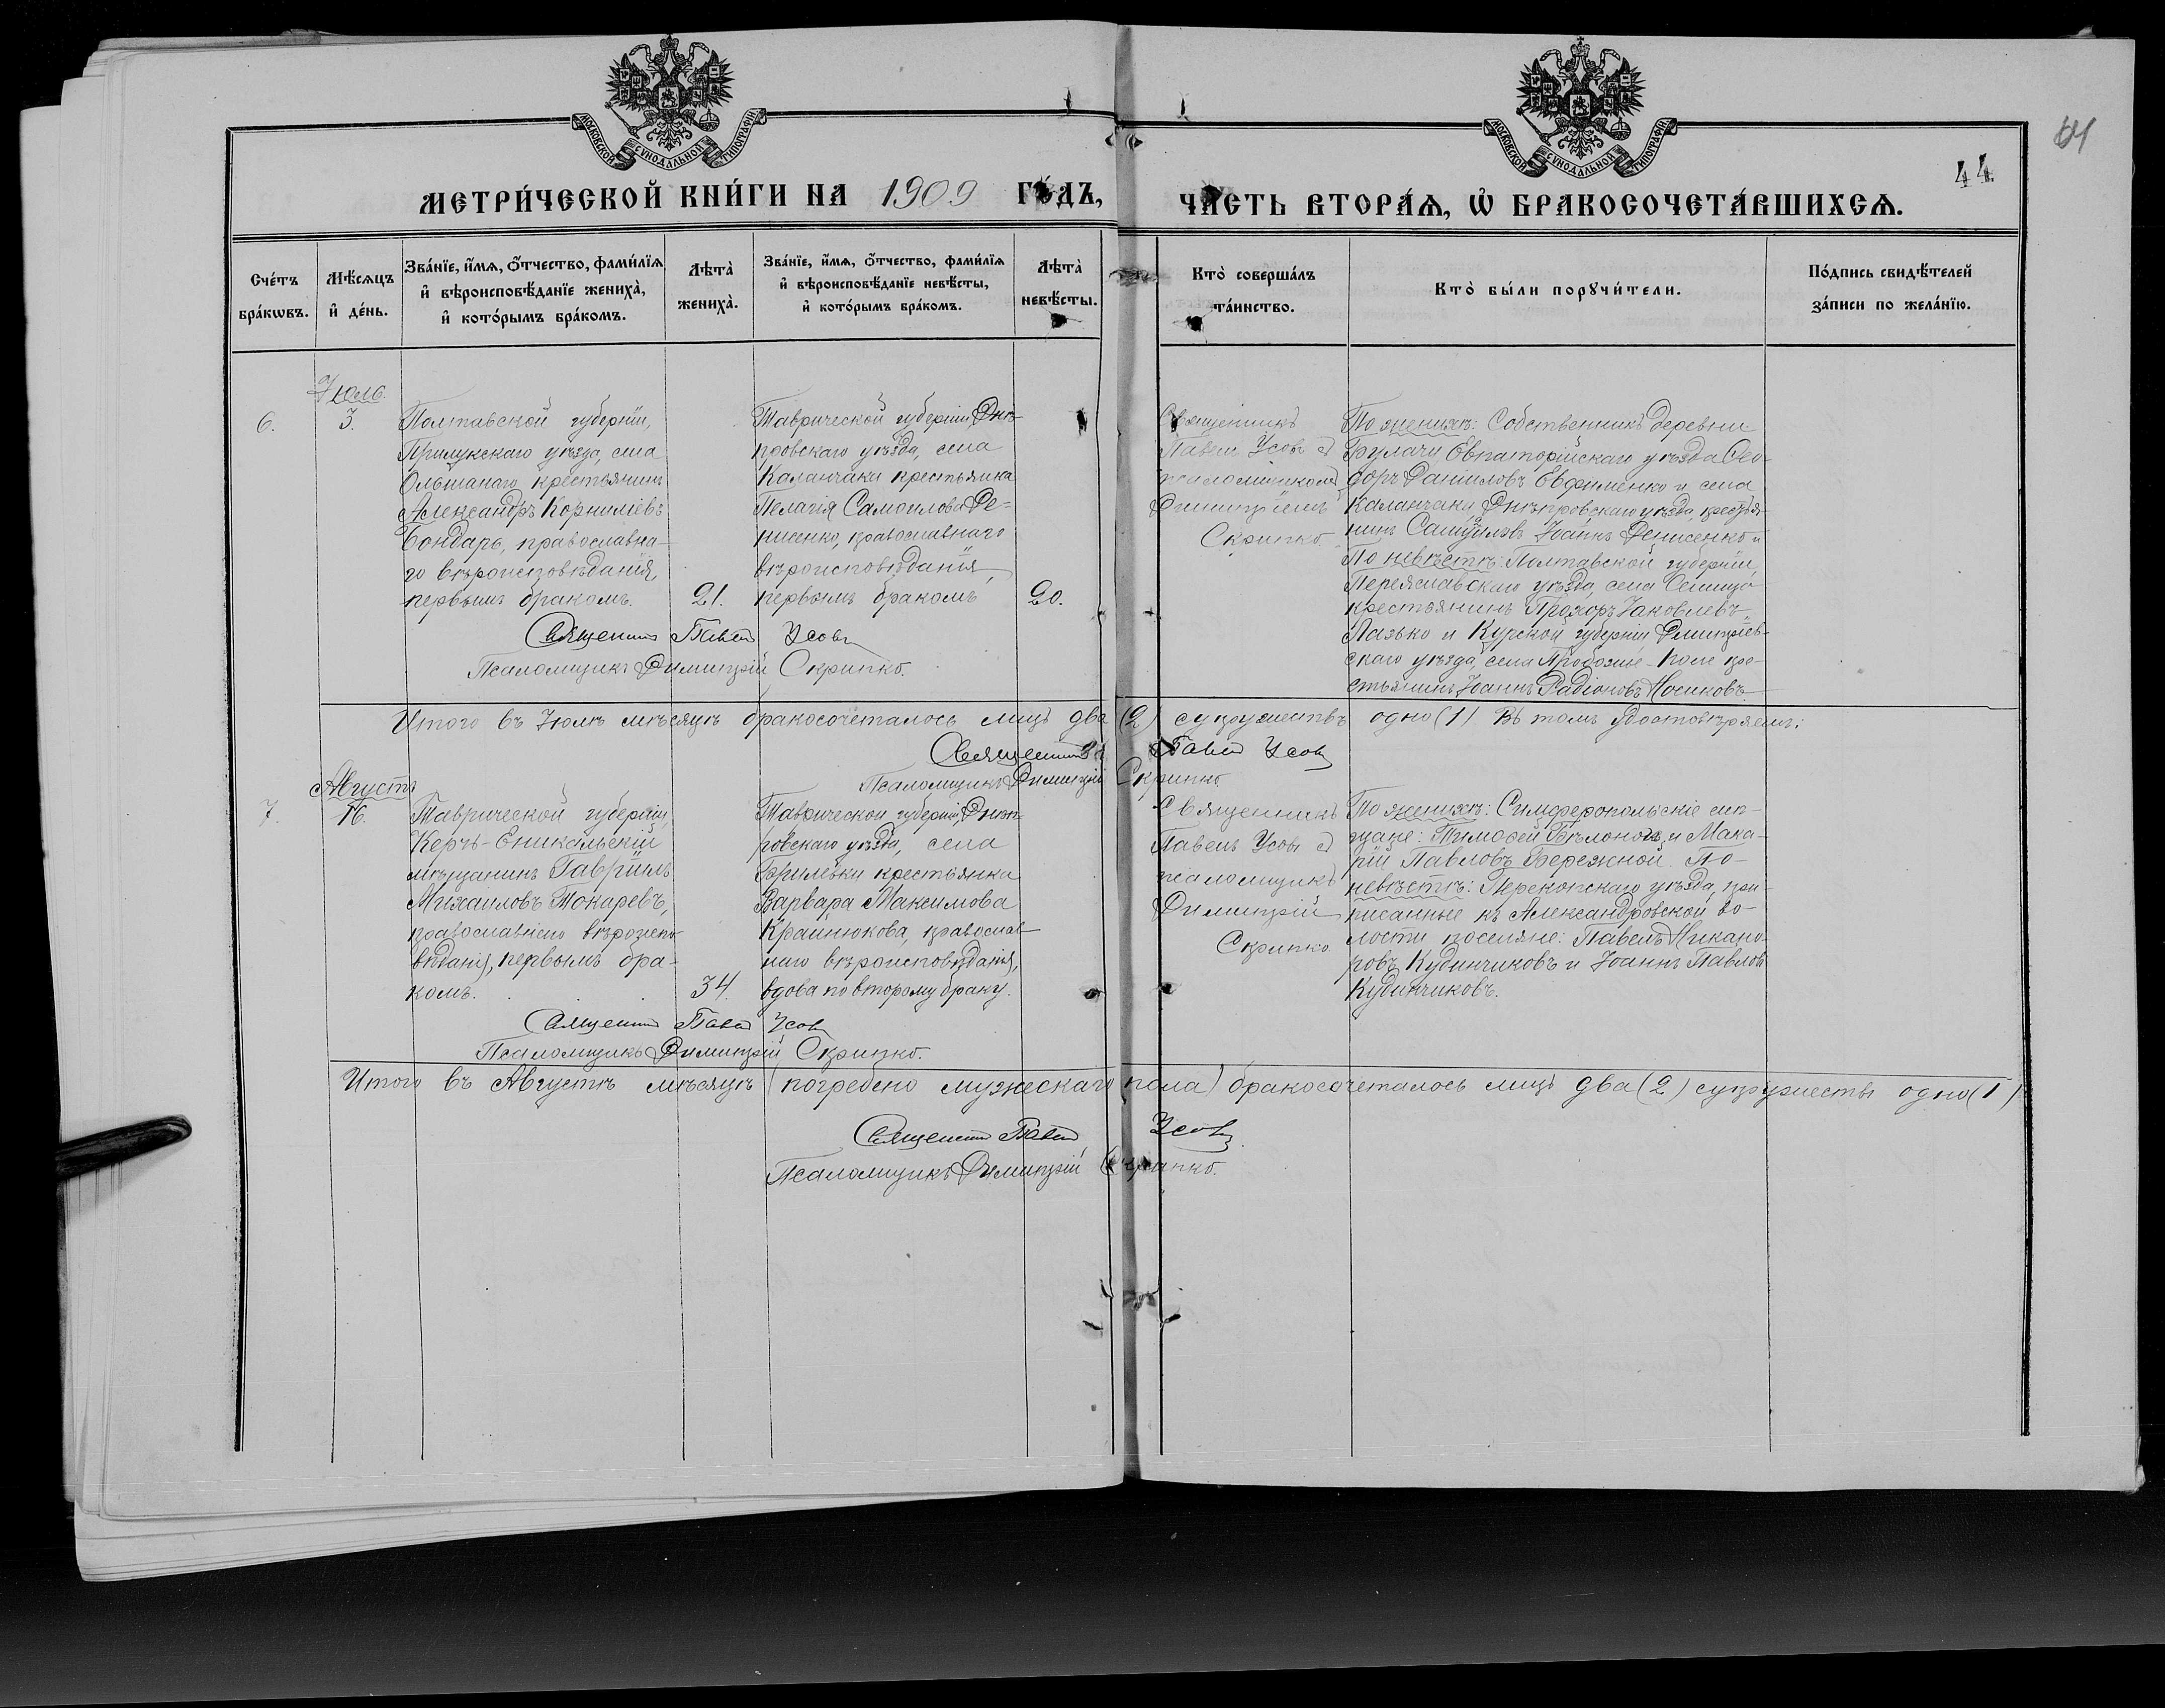 МОСКОВСКОЙ СУНОДАЛЬНОЙ ТИПОГРАФІИ
МОСКОВСКОЙ СУНОДАЛЬНОЙ ТИПОГРАФІИ
44.
МЕТРИ́ЧЕСКОЙ КНИ́ГИ НА 1909 ГО́ДЪ,
ЧА́СТЬ ВТОРА́Ѧ, Ѡ҆ БРАКОСОЧЕТА́ВШИХСѦ.
Сче́тъ
бра́кѡвъ.
Мѣ́сѧцъ
и҆ де́нь.
Зва́нїе, и҆́мѧ, ѻ҆́тчество, фами́лїѧ
и҆ вѣроисповѣ́данїе жениха̀,
и҆ кото́рымъ бра́комъ.
Лѣта̀
жениха̀.
Зва́нїе, и҆́мѧ, ѻ҆́тчество, фами́лїѧ
и҆ вѣроисповѣ́данїе невѣ́сты,
и҆ кото́рымъ бра́комъ.
Лѣта̀
невѣ́сты.
Кто̀ соверша́лъ
та́инство.
Кто̀ бы́ли порꙋчи́тели.
По́дпись свидѣ́телей
за́писи по жела́нїю.
Іюль.
6.
3.
Полтавской губерніи,
Прилукскаго уѣзда, села
Ольшанаго крестьянинъ
Александръ Корниліевъ
Бондарь, православна-
го вѣроисповѣданія,
первымъ бракомъ.
21.
Таврической губерніи Днѣ-
провскаго уѣзда, села
Каланчака крестьянка
Пелагія Самоилова Де-
нисенко, православнаго
вѣроисповѣданія,
первымъ бракомъ
20.
Священникъ
Павелъ Усовъ съ
псаломщикомъ
Димитріемъ
Скрипко.
По женихѣ: Собственникъ деревни
Булачи Евпаторійскаго уѣзда Ѳео-
доръ Даниловъ Евфименко и села
Каланчака Днѣпровскаго уѣзда, крестья-
нинъ Самуиловъ Іоаннъ Денисенко и
По невѣстѣ: Полтавской губерніи,
Переяславскаго уѣзда, села
крестьянинъ Прохоръ Іаковлевъ
Лазько и Курской губерніи Дмитріев-
скаго уѣзда, села Прибожье-Поле кре-
стьянинъ Іоаннъ Радіоновъ Носиковъ
Священникъ Павелъ Усовъ
Псаломщикъ Димитрій Скрипко.
Итого въ Іюлѣ мѣсяцѣ бракосочеталось лицъ два (2) супружествъ одно (1) Въ томъ удостовѣряемъ:
Священникъ Павелъ Усовъ
Псаломщикъ Димитрій Скрипко.
Августъ
7.
16.
Таврической губерніи,
Керчь-Еникальскій
мѣщанинъ Гавріилъ
Михаиловъ Токаревъ,
православнаго вѣроиспо-
вѣданія, первымъ бра-
комъ.
34.
Таврической губерніи, Днѣп-
ровскаго уѣзда, села
Брилевки крестьянка
Варвара Максимова
Крайнюкова, православ-
наго вѣроисповѣданія,
вдова по второму браку.
Священникъ
Павелъ Усовъ съ
псаломщикъ
Димитрій
Скрипко.
По женихѣ: Симферопольскіе мѣ-
щане: Тимофей и Мака-
рій Павловъ Бережной. По-
невѣстѣ: Перекопскаго уѣзда, при-
писанные къ Александровской во-
лости поселяне: Павелъ Никано-
ровъ Кудинчиковъ и Іоаннъ Павловъ
Кудинчиковъ.
Священникъ Павелъ Усовъ
Псаломщикъ Димитрій Скрипко.
Итого въ Августѣ мѣсяцѣ (погребено мужескаго пола) бракосочеталось лицъ два (2) супружествъ одно (1)
Священникъ Павелъ Усовъ
Псаломщикъ Димитрій Скрипко.